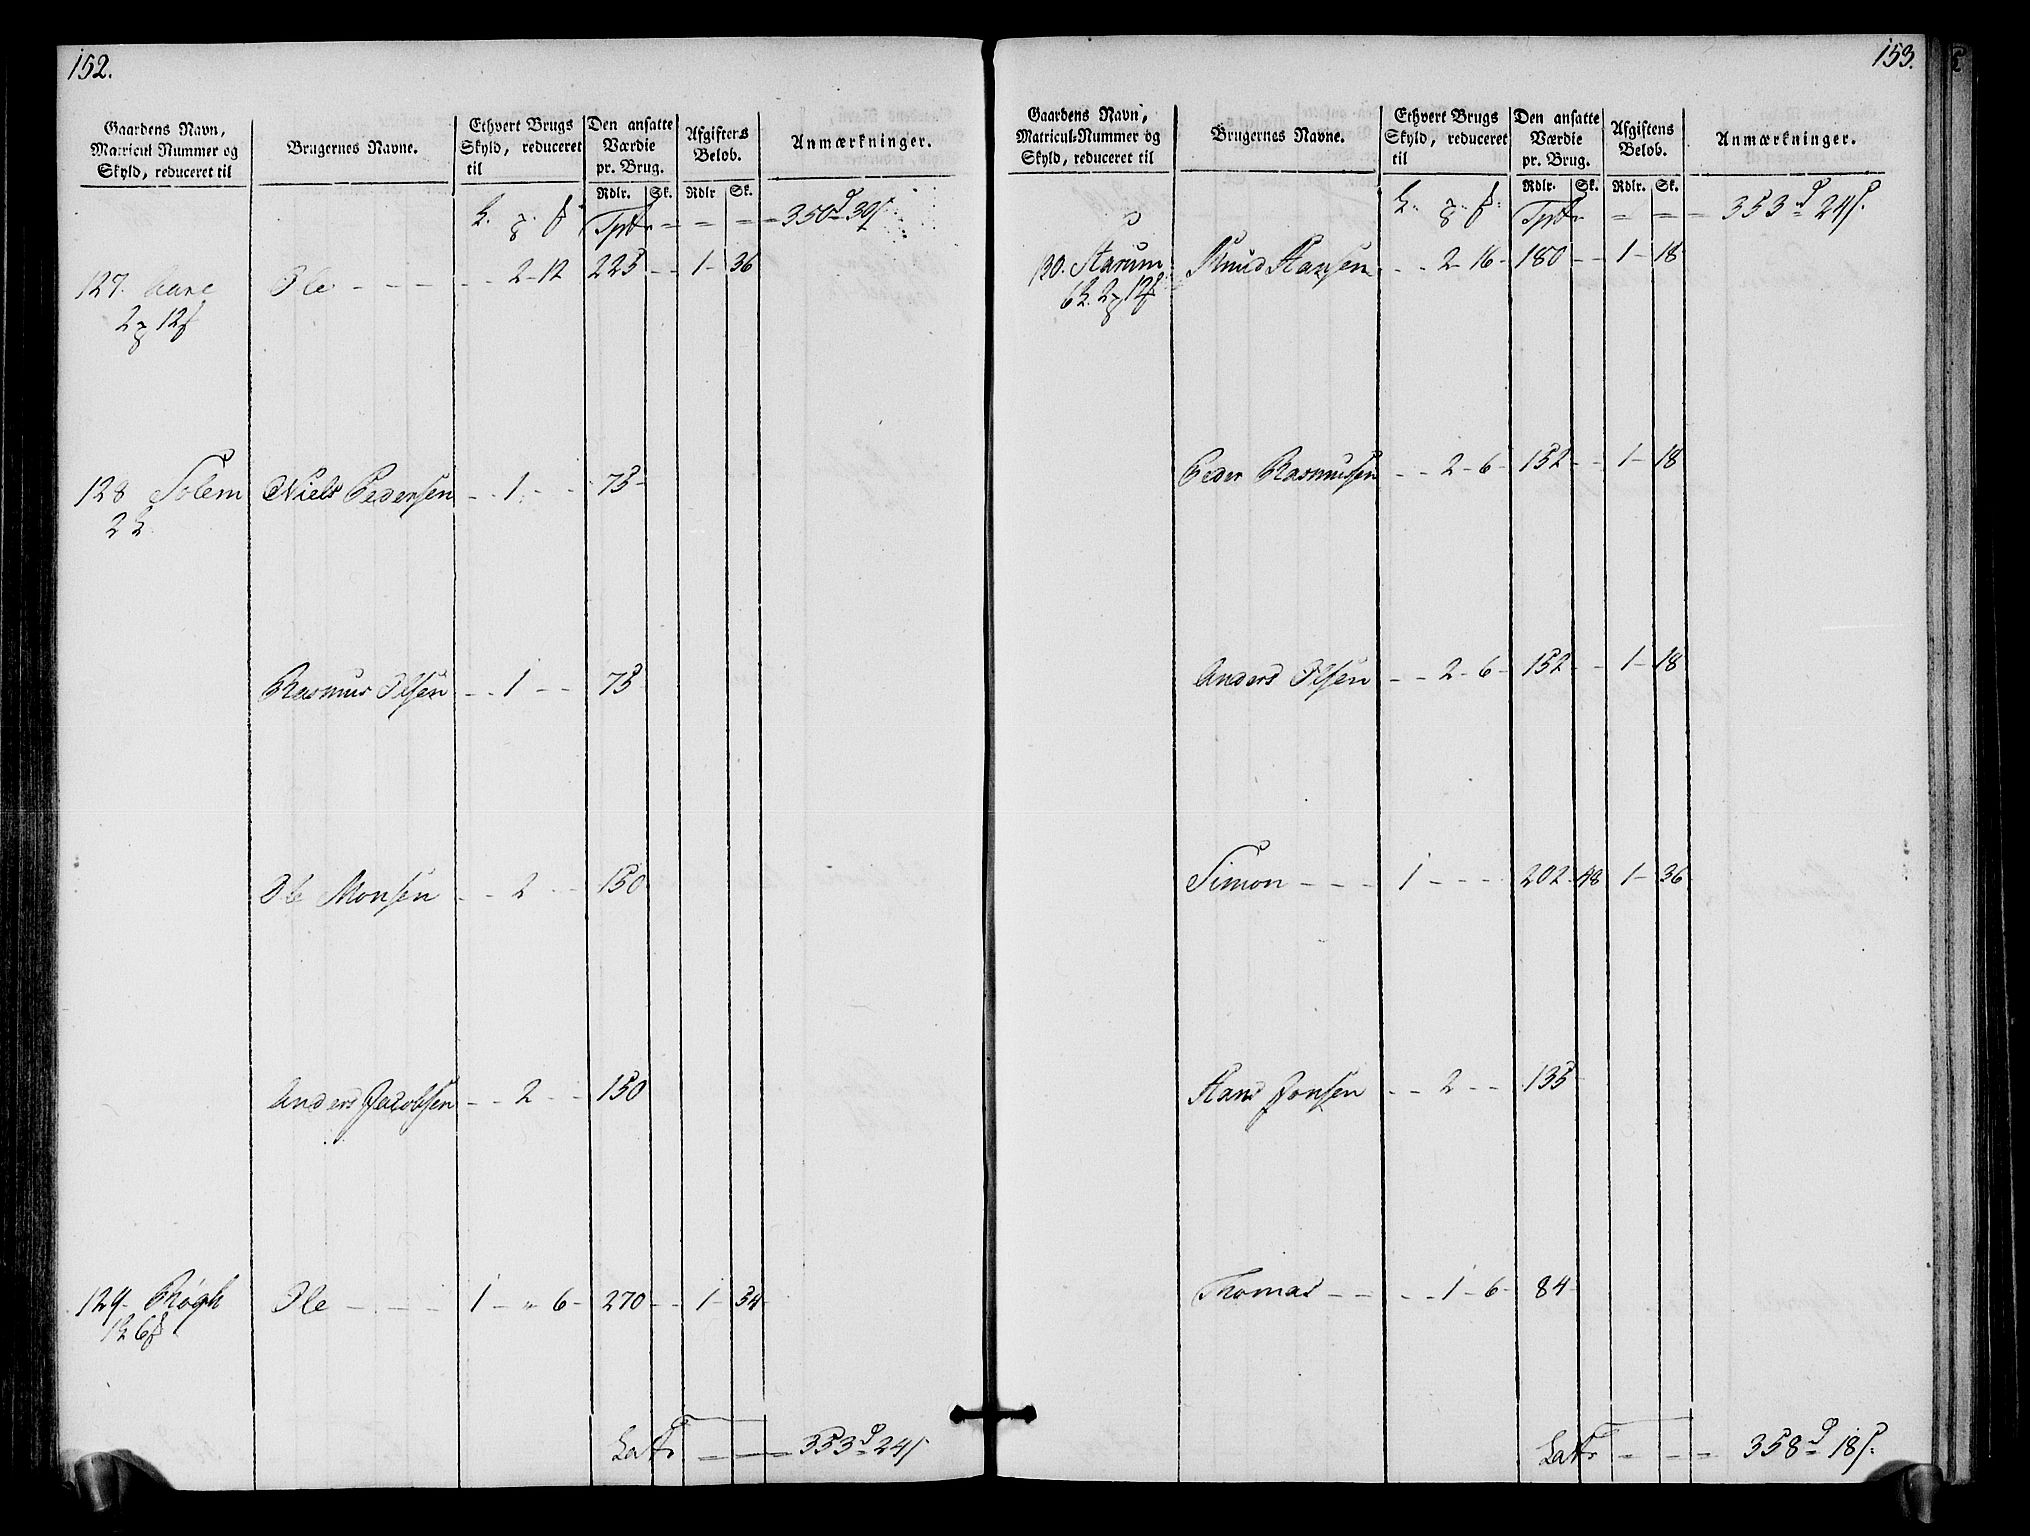 152.
Gaardens Navn, Matricul Nummer og Skyld, reduceret til
Brugernes Navne.
Ethvert Brugs Skyld, reduceret til
Den ansatte Værdie pr. Brug.
Afgiftens Beløb.
Anmærkninger.
Rdlr. Sk. Rdlr Sk.
Tpt = = = 350 d 30 s
127. Aane Ole - - - 2 - 12 225 - - 1 - 36
128 Solem Niels Pedersen - - 1 - - 75 -
Rasmus Olsen - - 1 - - 75
Ole Monsen - - 2 - - 150
Anders Jacobsen - - 2 - - 150
129 - Røgh Ole - - - 1 - " 6 - 270 - - 1 - 54
Latr = = 353 d 24 s
153.
Gaardens Navn, Matricul-Nummer og Skyld, reduceret til
Brugernes Navne.
Ethvert Brugs Skyld, reduceret til
Den ansatte Værdie pr. Brug.
Afgiftens Beløb.
Anmærkninger.
Rdlr. Sk. Rdlr. Sk.
Tpt = = = 353 d 24 s.
130. Aarum Knud Hansen - - 2 - 16 - 180 - - 1 - 18
Peder Rasmussen - - 2 - 6 - 152 - - 1 - 18
Anders Olsen - - 2 - 6 - 152 - - 1 - 18
Simon - - - 1 - - - 202 - 48 1 - 36
Hans Jonsen - - 2 - - 135
Thomas - - - - 1 - 6 - 84 -
Latr = = = 358 d 18 s.